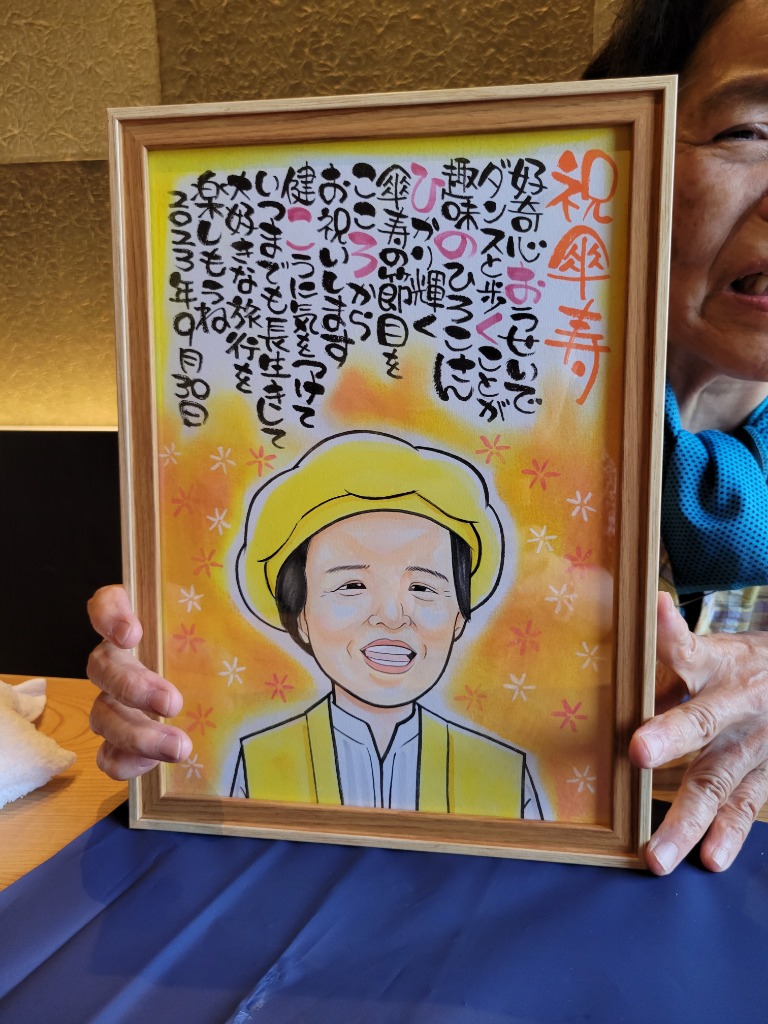 祝傘寿
好奇心おうせいで
ダンスと歩くことが
趣味のひろこさん
ひかり輝く
傘寿の節目を
こころから
お祝いします
健こうに気をつけて
いつまでも長生きして
大好きな旅行を
楽しもうね
2023年9月30日